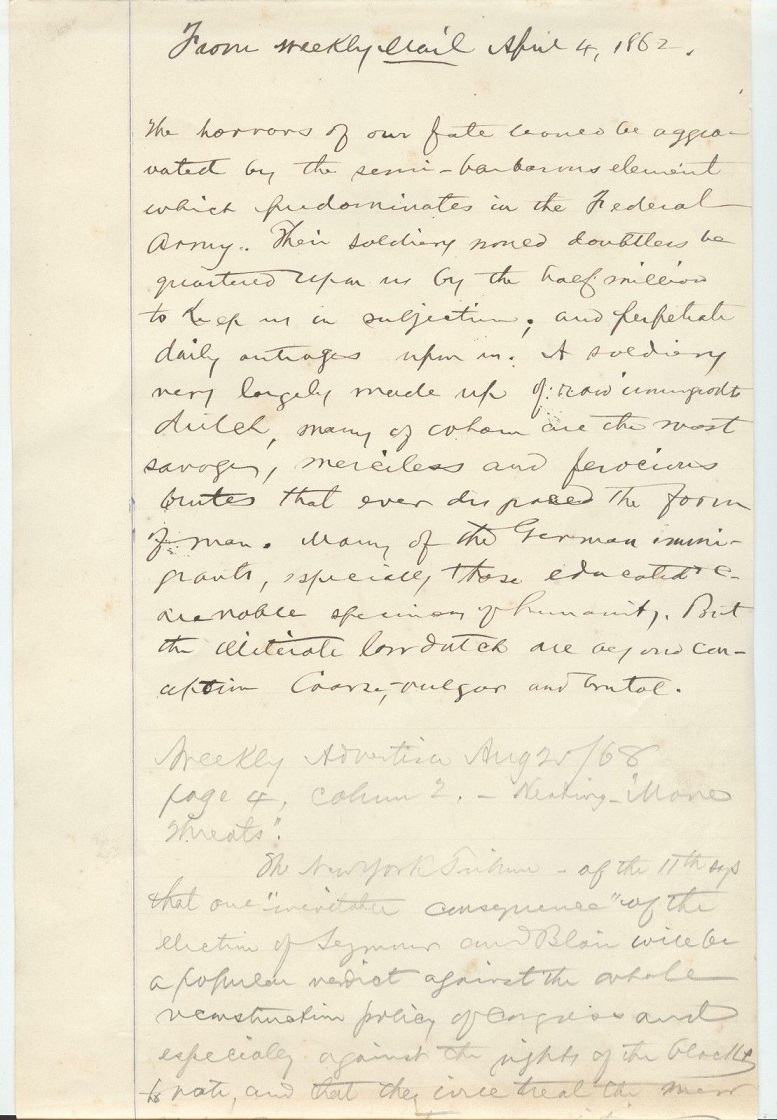 From weekly Mail April 4, 1862.
The horrors of our fate would be aggra-
vated by the semi-barbarous element
which predominates in the Federal
Army. Their soldiery would doubtless be
quartered upon us by the half million
to keep us in subjection; and perpetrate
daily outrages upon us. A soldiery
very largely made up of raw immigrant
dutch, many of whom are the most
savage, merciless and ferocious
brutes that ever disgraced the form
of man. Many of the German immi-
grants, especially those educated
are noble specimens of humanity. But
the illiterate low dutch are beyond con-
ception Coarse, vulgar and brutal.
Weekly Advertiser Aug 25/68
page 4, column 2. - Heading - "More
Threats".
The New York Tribune - of the 11th says
that one "inevitable consequence" of the
election of Seymour and Blair will be
a popular verdict against the whole
reconstruction policy of Congress and
especially against the rights of the blacks
to vote, and that they will treat the